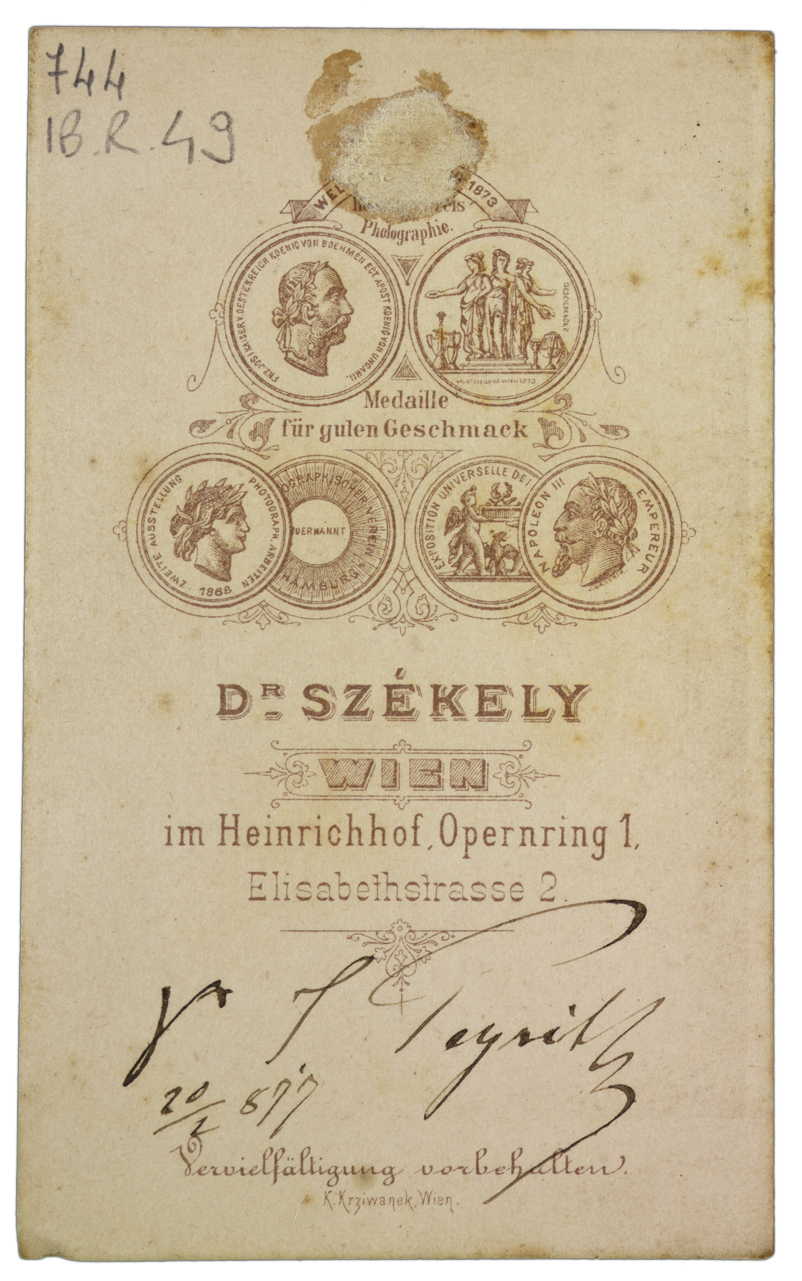 744
IB.R.49
WEL 1873
Photographie.
FRZ.JOS.I.KAISER V.OESTERREICH KOENIG VON BOEHMEN ECT.APOST.KOENIG VON UNGARN.
Medaille
für guten Geschmack
ZWEITE AUSSTELLUNG PHOTOGRAPH.ARBEITEN
1868
OGRAPHISCHER VEREIN
HAMBURG
EXPOSITION UNIVERSELLE DE
NAPOLEON III EMPEREUR
DR SZÉKELY
WIEN
im Heinrichhof, Opernring 1,
Elisabethstrasse 2.
Dr J Peyritz
20/I 877
Vervielfältigung vorbehalten.
K.Krziwanek, Wien.